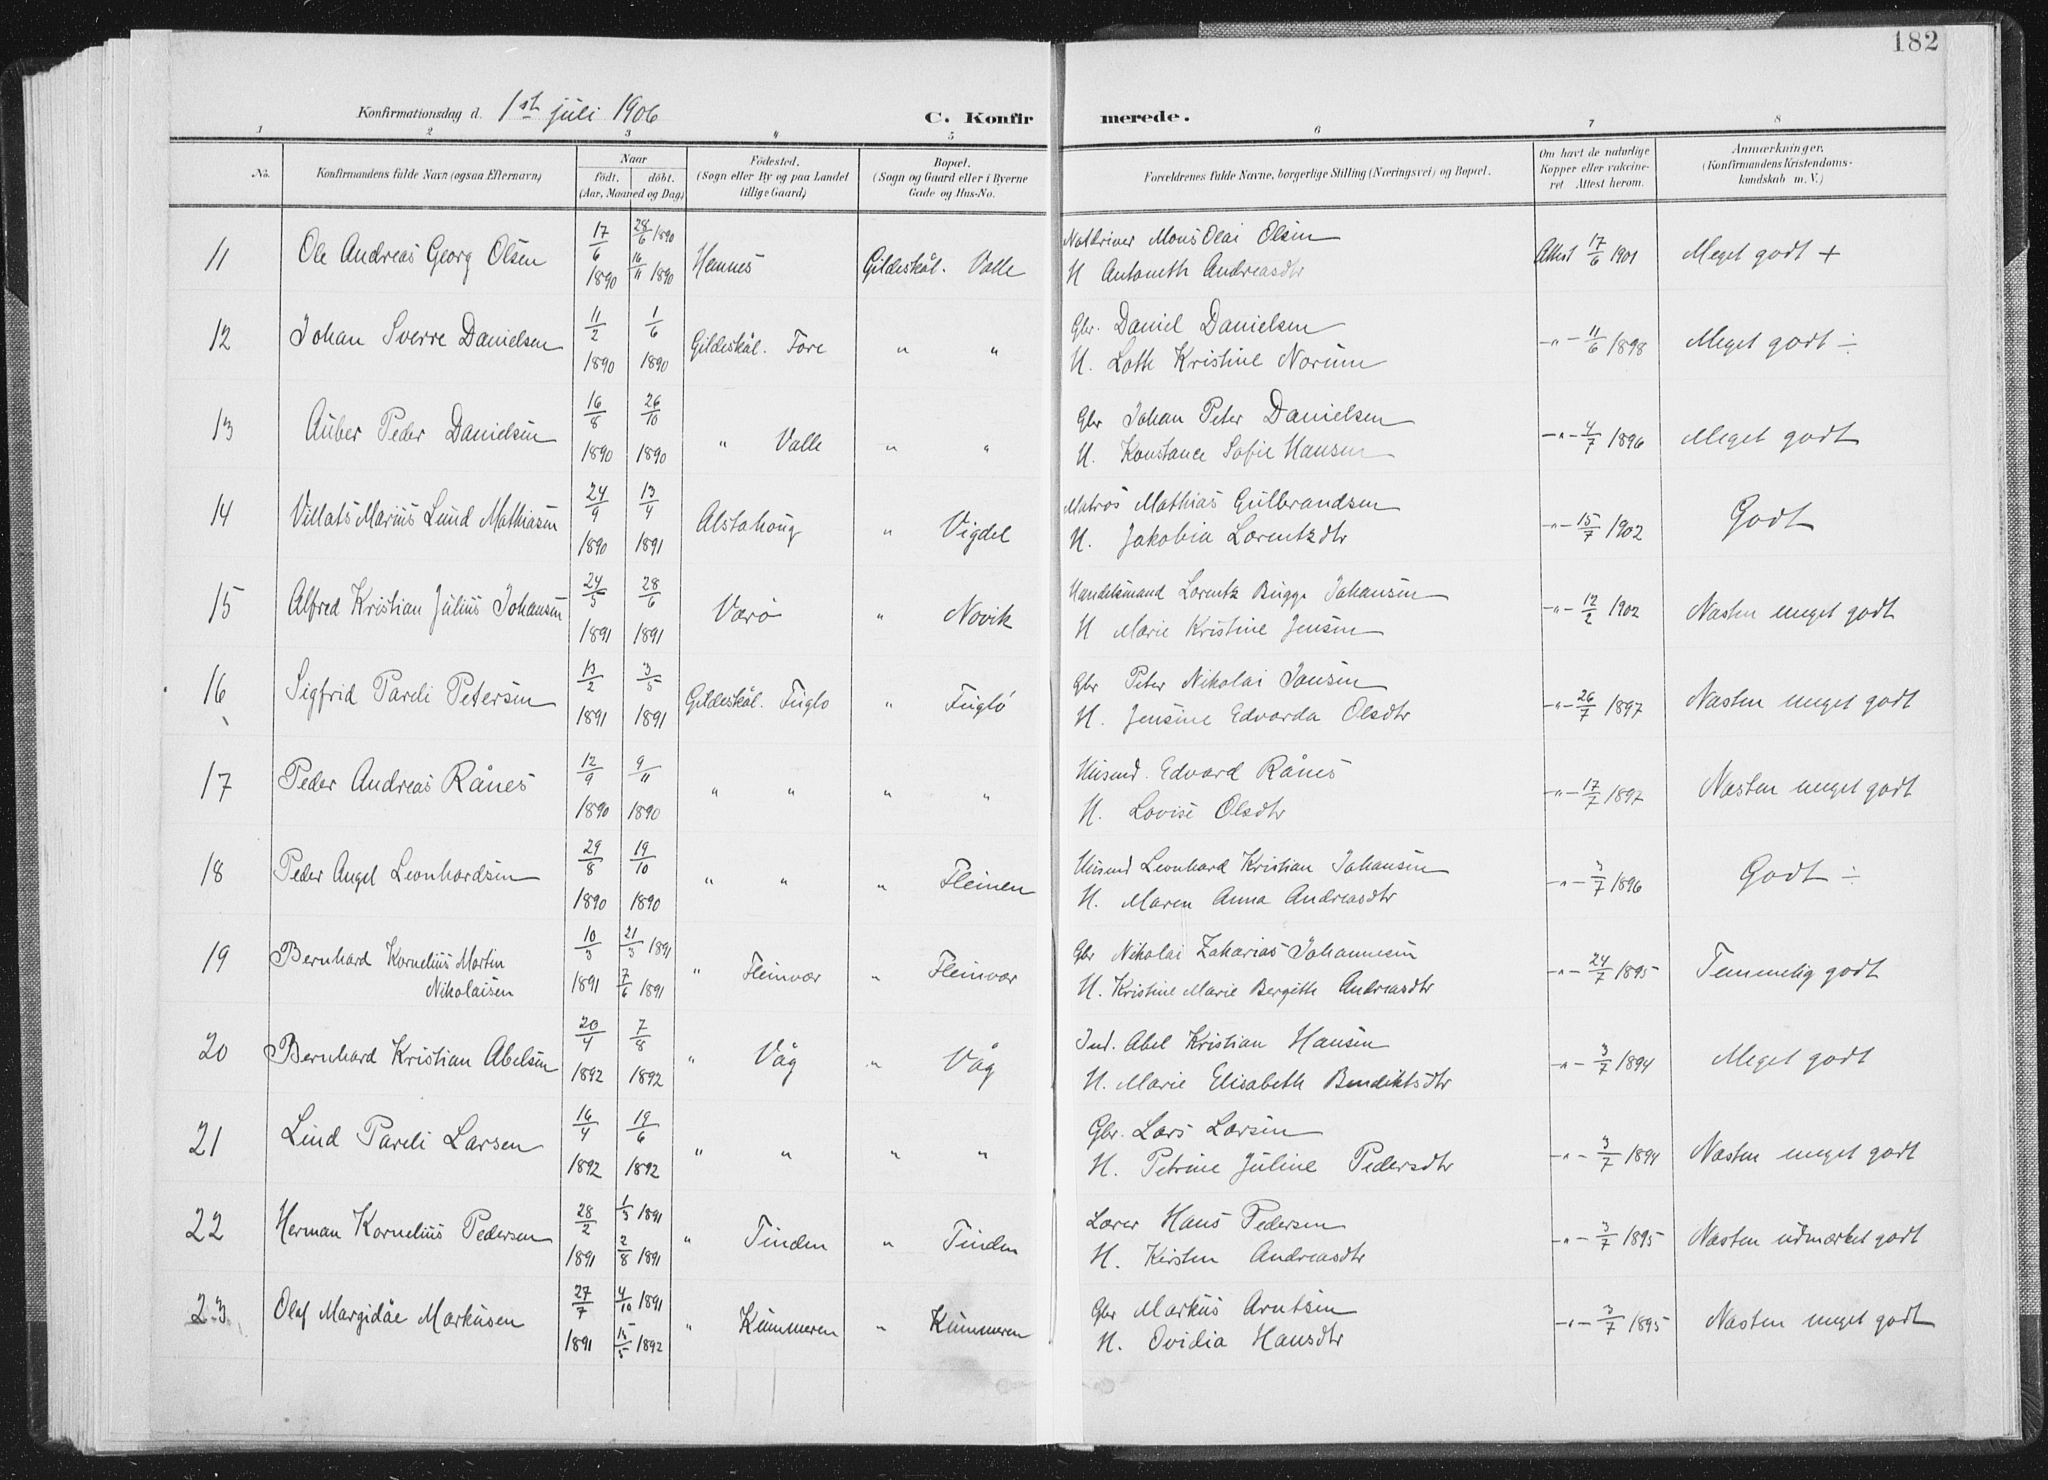 182
Konfirmationsdag d. 1st juli 1906 C. Konfirmerede.
1 2 3 4 5 6 7 8
No. Konfirmandens fulde Navn (ogsaa Efternavn) Naar født. døbt. (Aar, Maaned og Dag) Fødested. (Sogn eller By og paa Landet tillige Gaard) Bopæl. (Sogn og Gaard eller i Byerne Gade og Hus-No. Forældrenes fulde Navne, borgerlige Stilling (Næringsvei) og Bopæl. Om havt de naturlige Kopper eller vakcineret Attest herom. Anmærkninger. (Konfirmandens Kristendomskundskab m. V.)
11 Ole Andreas Georg Olsen 17/6 1890 28/6 1890 16/11 1890 Hemnes Gildeskål. Valle Notdriver Mons Olai Olsen Attest 17/6 1901 Meget godt +
H Antoneth Andreasdtr
12 Johan Sverre Danielsen 11/2 1890 1/6 1890 Gildeskål. Føre " " Gbr. Daniel Danielsen -"- 11/6 1898 Meget godt ÷
H. Loth Kristine Norum
13 Auber Peder Danielsen 16/8 1890 26/10 1890 " Valle " " Gbr Johan Peter Danielsen -"- 4/7 1896 Meget godt
H. Konstance Sofie Hansen
14 Villats Marius Lund Mathiasen 24/9 1890 13/4 1891 Alstahoug " Vigdel Matros Mathias Gulbrandsen -"- 15/7 1902 Godt
H. Jakobia Lorentzdtr
15 Alfred Kristian Julius Johansen 24/5 1891 28/6 1891 Værø " Novik Handelsmand Lorentz Bugge Johansen -"- 12/2 1902 Næsten meget godt
H Marie Kristine Jensen
16 Sigfrid Pareli Petersen 13/2 1891 3/5 1891 Gildeskål. Fuglø " Fuglø Gbr Peter Nikolai Jansen -"- 26/7 1897 Næsten meget godt
H. Jensine Edvarda Olsdtr
17 Peder Andreas Rånes 12/9 1890 9/11 1890 " " " " Husmd. Edvard Rånes -"- 17/7 1897 Næsten meget godt
H. Lovise Olsdtr
18 Peder Angel Leonhardsen 29/8 1890 19/10 1890 " " " Fleinen Husmd Leonhard Kristian Johansen -"- 3/7 1896 Godt ÷
H. Maren Anna Andreasdtr
19 Bernhard Kornelius Martin Nikolaisen 10/3 1891 21/3 1891 7/6 1891 " Fleinvær " Fleinvær Gbr Nikolai Zakarias Johannesen -"- 24/7 1895 Temmelig godt
H. Kristine Marie Bergith Andreasdtr
20 Bernhard Kristian Abelsen 20/4 1892 7/8 1892 " Våg " Våg Ind. Abel Kristian Hansen -"- 3/7 1894 Meget godt
H. Marie Elisabeth Bendiktsdtr
21 Lind Pareli Larsen 16/4 1892 19/6 1892 " " " " Gbr. Lars Larsen -"- 3/7 1894 Næsten meget godt
H. Petrine Juline Pedersdtr
22 Herman Kornelius Pedersen 28/2 1891 1/3 1891 2/8 1891 " Tinden " Tinden Lærer Hans Pedersen -"- 3/7 1895 Næsten udmærket godt
H. Kirsten Andreasdtr
23 Olaf Margidåe Markusen 27/7 1891 4/10 1891 15/5 1892 " Kummeren " Kummeren Gbr Markus Arntsen -"- 3/7 1895 Næsten meget godt
H. Ovidia Hansdtr